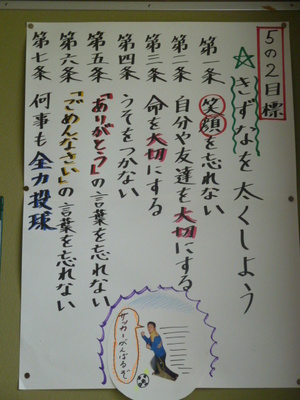 5の2目標
☆きずなを太くしよう
第一条 笑顔を忘れない
第二条 自分や友達を大切にする
第三条 命を大切にする
第四条 うそをつかない
第五条 「ありがとう」の言葉を忘れない
第六条 「ごめんなさい」の言葉を忘れない
第七条 何事も全力投球
サッカーがんばるぞ